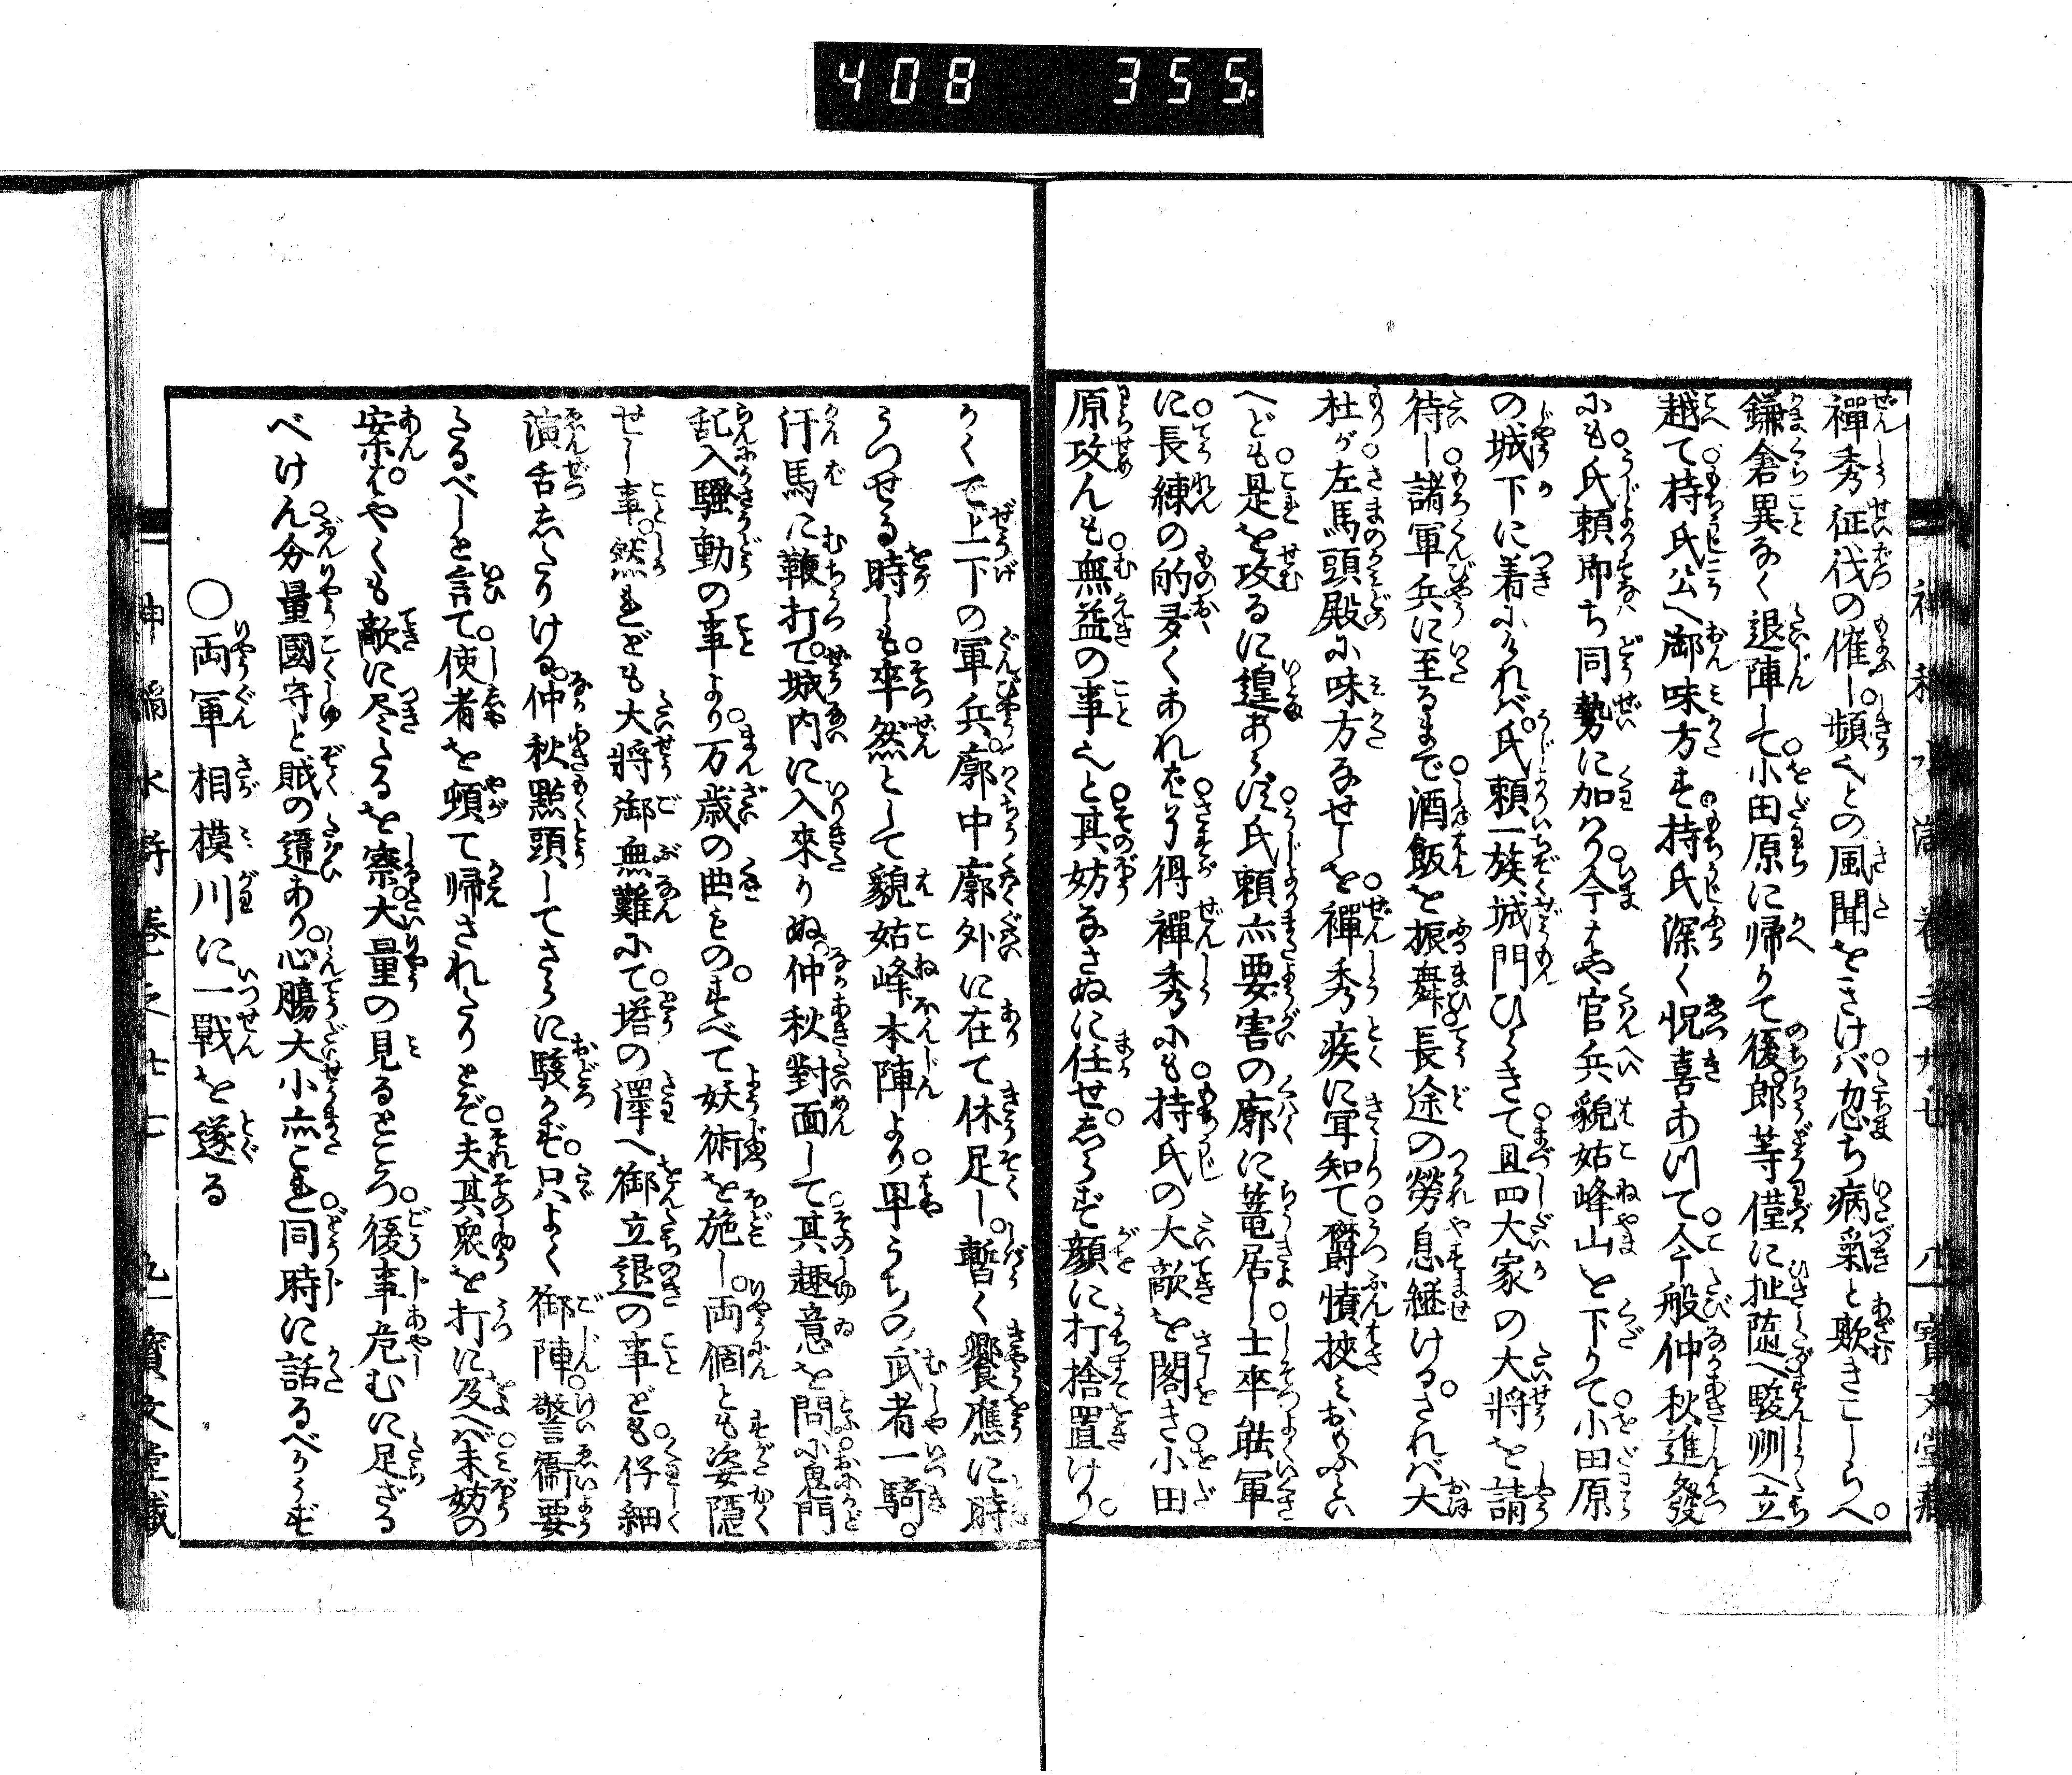 408 355
禪秀征伐の催し。頻〻との風聞をさけバ忽ち病氣と欺きこしらへ。
鎌倉異なく退陣して小田原に帰りて後。郎等僅に扯随へ駿州へ立
越て持氏公へ御味方す持氏深く悦喜あり(て)今般仲秋進發
にも氏頼即ち同勢に加り今はや官兵貌姑峰山を下りて小田原
の城下に着にけれバ。氏頼一族城門ひらきて且四大家の大將を請
待し諸軍兵に至るまで酒飯を振舞長途の勞息継ける。されバ大
杜が左馬頭殿に味方なせしを禪秀疾に耳知て欝憤挾ミおもふとい
へども是を攻るに遑あらず氏頼亦要害の廓に篭居し士卒能軍
に長練の的多くあれバ得禪秀にも持氏の大敵を閣き小田
原攻んも無益の事〻と其妨なさぬに任せ。しらず顔に打捨置けり。
神稲水滸 巻之廿七 八 寳文堂藏
かくて上下の軍兵。廓中廓外に在て休足し。暫く饗應に時
うつせる時しも卒然として貌姑峰本陣より早うちの武者一騎。
汗馬に鞭打て。城内に入來りぬ。仲秋對面して其趣意を問小鬼門
乱入騒動の事より万歳の曲もの。すべて妖術を施し。両個とも姿隠
せし事。然れども大將御無難にて。塔の澤へ御立退の事ども仔細
演舌したりける。仲秋點頭してさらに駭かず。只よく御陣。警衞要
たるべしと言て。使者を頓て帰されたりとぞ夫其衆を打に及べバ未妨の
案。はやくも敵に尽たるを察。大量の見るところ後事危むに足ざる
べけん分量國守と賊の違あり。心膓大小亦これ同時に話るべからず
○両軍相模川に一戰を遂る
神稲水滸 巻之廿七 九 寳文堂藏